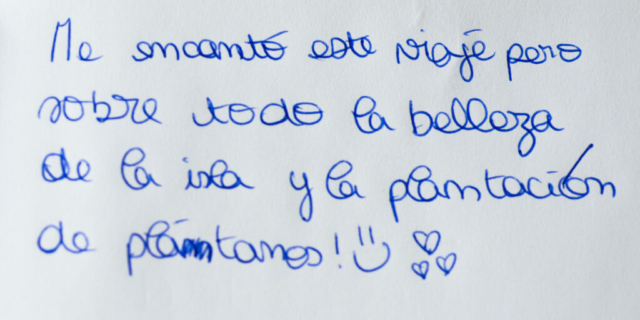 Me encantó este viaje pero
sobre todo la belleza
de la isla y la plantación
de plántanos!